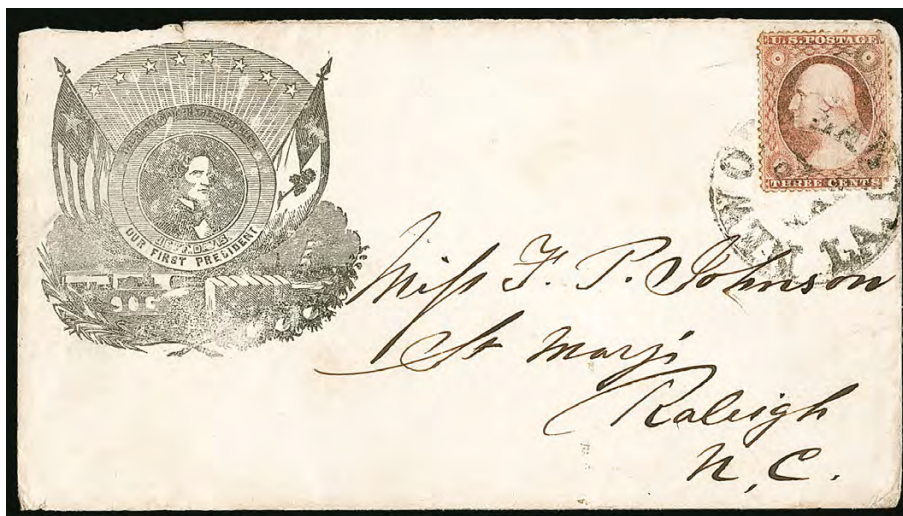 JEFF DAVIS
OUR FIRST PRECIDENT
U.S. POSTAGE
THREE CENTS
NEW O LA
Miss F. P. Johnson
St Mary's
Raleigh
N.C.